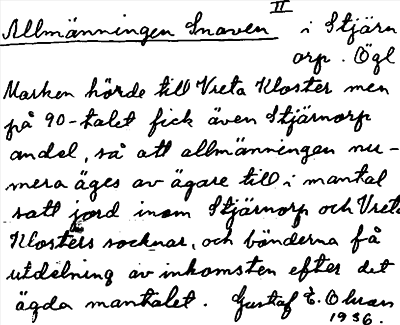 Allmänningen Snaven II i Stjärn
orp. Ögl
Marken hörde till Vreta Kloster men
på 90-talet fick även Stjärnorp
andel, så att allmänningen nu-
mera äges av ägare till i mantal
satt jord inom Stjärnorp och Vreta
Klosters socknar, och bönderna få
utdelning av inkomsten efter det
ägda mantalet. Gustaf E.
1936.